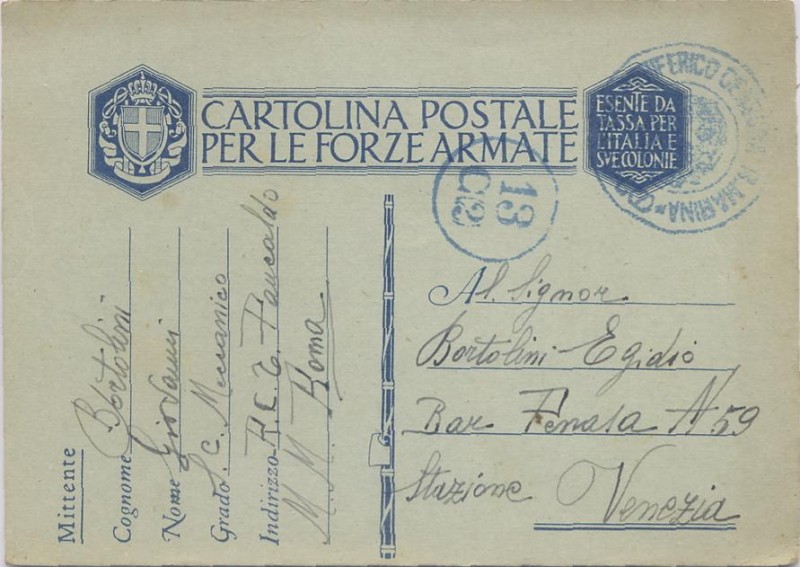 CARTOLINA POSTALE
PER LE FORZE ARMATE
ESENTE DA
TASSA PER
L'ITALIA E
SVE COLONIE
R. MARINA
13
C(2)
Mittente
Cognome Bortolini
Nome Giovanni
Grado S.C. Meccanico
Indirizzo R.C.T. Pancaldo
M.M. Roma
Al Signor
Bortolini Egidio
Bar Fenasa N 59
Stazione Venezia